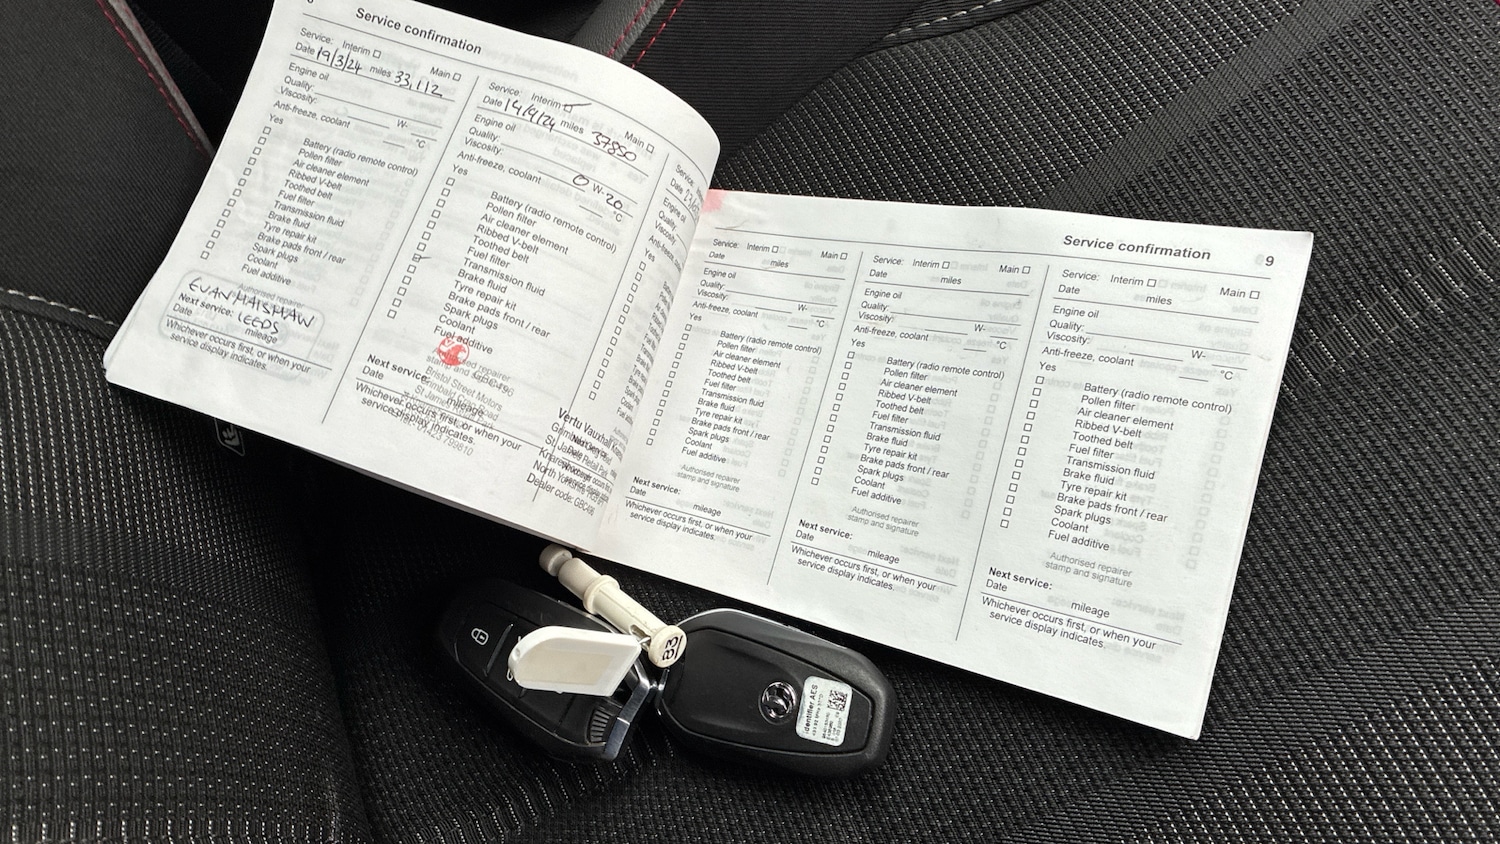 Service confirmation
Service: Interim Main
Date 19/3/24 miles 33,112
Engine oil
Quality:
Viscosity: W-
Anti-freeze, coolant °C
Yes
Battery (radio remote control)
Pollen filter
Air cleaner element
Ribbed V-belt
Toothed belt
Fuel filter
Transmission fluid
Brake fluid
Tyre repair kit
Brake pads front / rear
Spark plugs
Coolant
Fuel additive
Authorised repairer
EVAN HALSHAW
LEEDS
Next service:
Date mileage
Whichever occurs first, or when your
service display indicates.
Service: Interim Main
Date 14/9/24 miles 37850
Engine oil
Quality:
Viscosity: 0 W-20
Anti-freeze, coolant °C
Yes
Battery (radio remote control)
Pollen filter
Air cleaner element
Ribbed V-belt
Toothed belt
Fuel filter
Transmission fluid
Brake fluid
Tyre repair kit
Brake pads front / rear
Spark plugs
Coolant
Fuel additive
Bristol Street Motors
Next service:
Date mileage
Whichever occurs first, or when your
service display indicates.
Service:
Date
Engine oil
Quality:
Yes
Vertu Vauxhall
Dealer code: GBC496
Service confirmation 9
Service: Interim Main
Date miles
Engine oil
Quality:
Viscosity: W-
Anti-freeze, coolant °C
Yes
Battery (radio remote control)
Pollen filter
Air cleaner element
Ribbed V-belt
Toothed belt
Fuel filter
Transmission fluid
Brake fluid
Tyre repair kit
Brake pads front / rear
Spark plugs
Coolant
Fuel additive
Authorised repairer
stamp and signature
Next service:
Date mileage
Whichever occurs first, or when your
service display indicates.
Service: Interim Main
Date miles
Engine oil
Quality:
Viscosity: W-
Anti-freeze, coolant °C
Yes
Battery (radio remote control)
Pollen filter
Air cleaner element
Ribbed V-belt
Toothed belt
Fuel filter
Transmission fluid
Brake fluid
Tyre repair kit
Brake pads front / rear
Spark plugs
Coolant
Fuel additive
Authorised repairer
stamp and signature
Next service:
Date mileage
Whichever occurs first, or when your
service display indicates.
Service: Interim Main
Date miles
Engine oil
Quality:
Viscosity: W-
Anti-freeze, coolant °C
Yes
Battery (radio remote control)
Pollen filter
Air cleaner element
Ribbed V-belt
Toothed belt
Fuel filter
Transmission fluid
Brake fluid
Tyre repair kit
Brake pads front / rear
Spark plugs
Coolant
Fuel additive
Authorised repairer
stamp and signature
Next service:
Date mileage
Whichever occurs first, or when your
service display indicates.
83
identifier AES